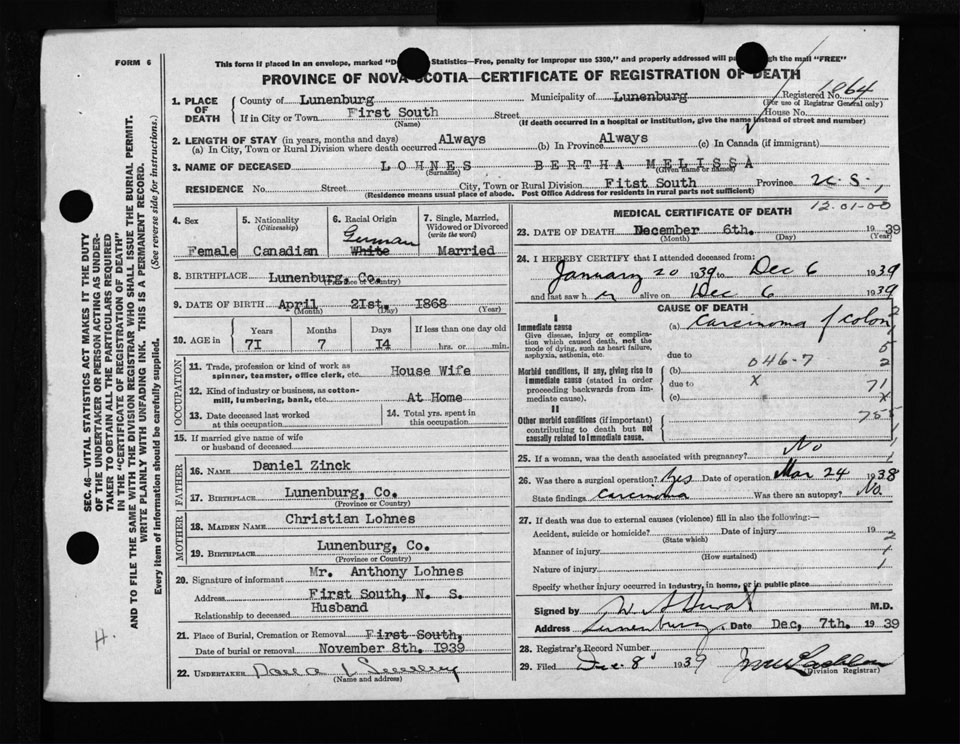 FORM 6
This form if placed in an envelope, marked "De Statistics—Free, penalty for improper use $300," and properly addressed will pa through the mail "FREE"
PROVINCE OF NOVA SCOTIA—CERTIFICATE OF REGISTRATION OF DEATH
1. PLACE OF DEATH
County of Lunenburg Municipality of Lunenburg Registered No. 1964
(For use of Registrar General only)
If in City or Town First South Street House No.
(Name) (If death occurred in a hospital or institution, give the name instead of street and number)
2. LENGTH OF STAY (in years, months and days)
(a) In City, Town or Rural Division where death occurred Always (b) In Province Always (c) In Canada (if immigrant)
3. NAME OF DECEASED LOHNES BERTHA MELISSA
(Surname) (Given name or names)
RESIDENCE No. Street City, Town or Rural Division Fitst South Province N. S.
(Residence means usual place of abode. Post Office Address for residents in rural parts not sufficient)
12-01-00
4. Sex
Female
5. Nationality
(Citizenship)
Canadian
6. Racial Origin
German
White
7. Single, Married, Widowed or Divorced
(write the word)
Married
8. BIRTHPLACE Lunenburg, Co.
(Province or Country)
9. DATE OF BIRTH April 21st. 1868
(Month) (Day) (Year)
10. AGE in
Years Months Days If less than one day old
71 7 14 hrs. or min.
OCCUPATION
11. Trade, profession or kind of work as spinner, teamster, office clerk, etc. House Wife
12. Kind of industry or business, as cotton-mill, lumbering, bank, etc. At Home
13. Date deceased last worked at this occupation
14. Total yrs. spent in this occupation
15. If married give name of wife or husband of deceased
FATHER
16. NAME Daniel Zinck
17. BIRTHPLACE Lunenburg, Co.
(Province or Country)
MOTHER
18. MAIDEN NAME Christian Lohnes
19. BIRTHPLACE Lunenburg, Co.
(Province or Country)
20. Signature of informant Mr. Anthony Lohnes
Address First South, N. S.
Relationship to deceased Husband
21. Place of Burial, Cremation or Removal First South,
Date of burial or removal November 8th. 1939
22. UNDERTAKER
(Name and address)
MEDICAL CERTIFICATE OF DEATH
23. DATE OF DEATH December 6th. 1939
(Month) (Day) (Year)
24. I HEREBY CERTIFY that I attended deceased from:
January 20 1939 to Dec 6 1939
and last saw h er alive on Dec 6 1939
CAUSE OF DEATH
I
Immediate cause
Give disease, injury or complication which caused death, not the mode of dying, such as heart failure, asphyxia, asthenia, etc.
(a) Carcinoma of Colon
due to
Morbid conditions, if any, giving rise to immediate cause (stated in order proceeding backwards from immediate cause).
(b) 046-7
due to x
(c)
71
II
Other morbid conditions (if important) contributing to death but not causally related to immediate cause.
25. If a woman, was the death associated with pregnancy? No
26. Was there a surgical operation? Yes Date of operation Mar 24 1938
State findings Carcinoma Was there an autopsy? No
27. If death was due to external causes (violence) fill in also the following:—
Accident, suicide or homicide? Date of injury 19
(State which)
Manner of injury
(How sustained)
Nature of injury
Specify whether injury occurred in industry, in home, or in public place
Signed by M.D.
Address Lunenburg, Date Dec, 7th. 1939
28. Registrar's Record Number
29. Filed Dec. 8 1939
(Division Registrar)
SEC. 46—VITAL STATISTICS ACT MAKES IT THE DUTY
OF THE UNDERTAKER OR PERSON ACTING AS UNDER-
TAKER TO OBTAIN ALL THE PARTICULARS REQUIRED
IN THE "CERTIFICATE OF REGISTRATION OF DEATH"
AND TO FILE THE SAME WITH THE DIVISION REGISTRAR WHO SHALL ISSUE THE BURIAL PERMIT.
WRITE PLAINLY WITH UNFADING INK. THIS IS A PERMANENT RECORD.
Every item of information should be carefully supplied. (See reverse side for instructions.)
H.